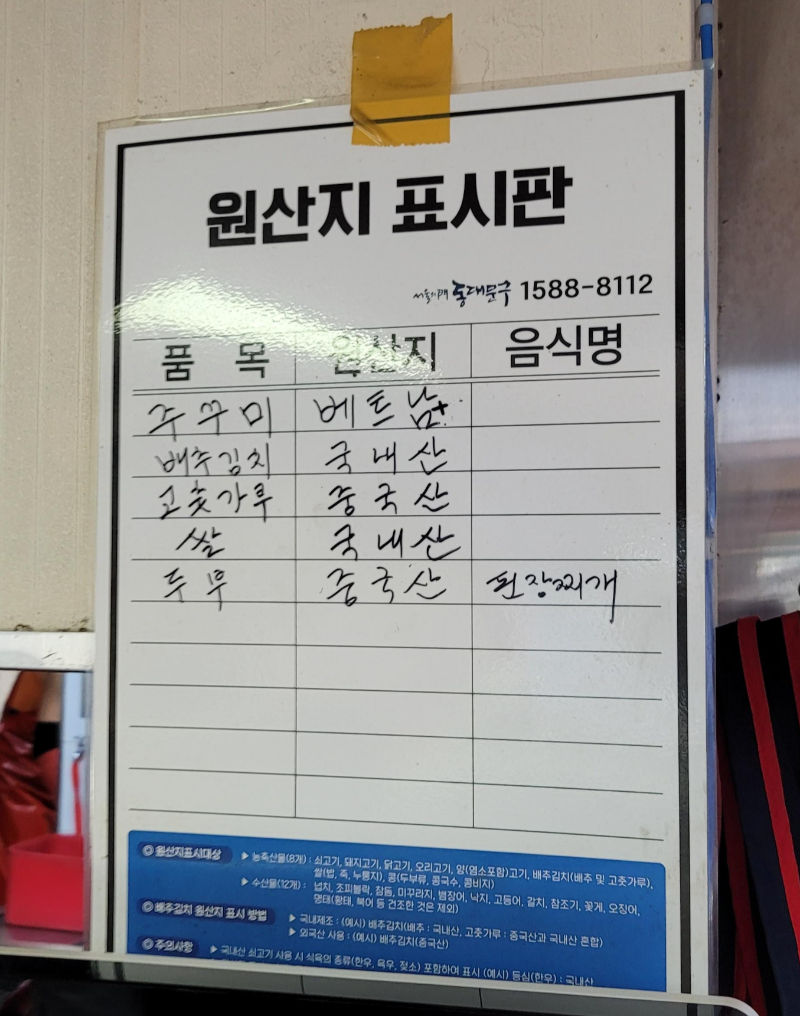 원산지 표시판
서울시 동대문구 1588-8112
품 목 원산지 음식명
주꾸미 베트남
배추김치 국내산
고춧가루 중국산
쌀 국내산
두부 중국산 된장찌개
◎ 원산지표시대상 ▶ 농축산물(8개) : 쇠고기, 돼지고기, 닭고기, 오리고기, 양(염소포함)고기, 배추김치(배추 및 고춧가루),
쌀(밥, 죽, 누룽지), 콩(두부류, 콩국수, 콩비지)
▶ 수산물(12개) : 넙치, 조피볼락, 참돔, 미꾸라지, 뱀장어, 낙지, 고등어, 갈치, 참조기, 꽃게, 오징어,
명태(황태, 북어 등 건조한 것은 제외)
◎ 배추김치 원산지 표시 방법 ▶ 국내제조 : (예시) 배추김치(배추 : 국내산, 고춧가루 : 중국산과 국내산 혼합)
▶ 외국산 사용 : (예시) 배추김치(중국산)
◎ 주의사항 ▶ 국내산 쇠고기 사용 시 식육의 종류(한우, 육우, 젖소) 포함하여 표시 (예시) 등심(한우) : 국내산